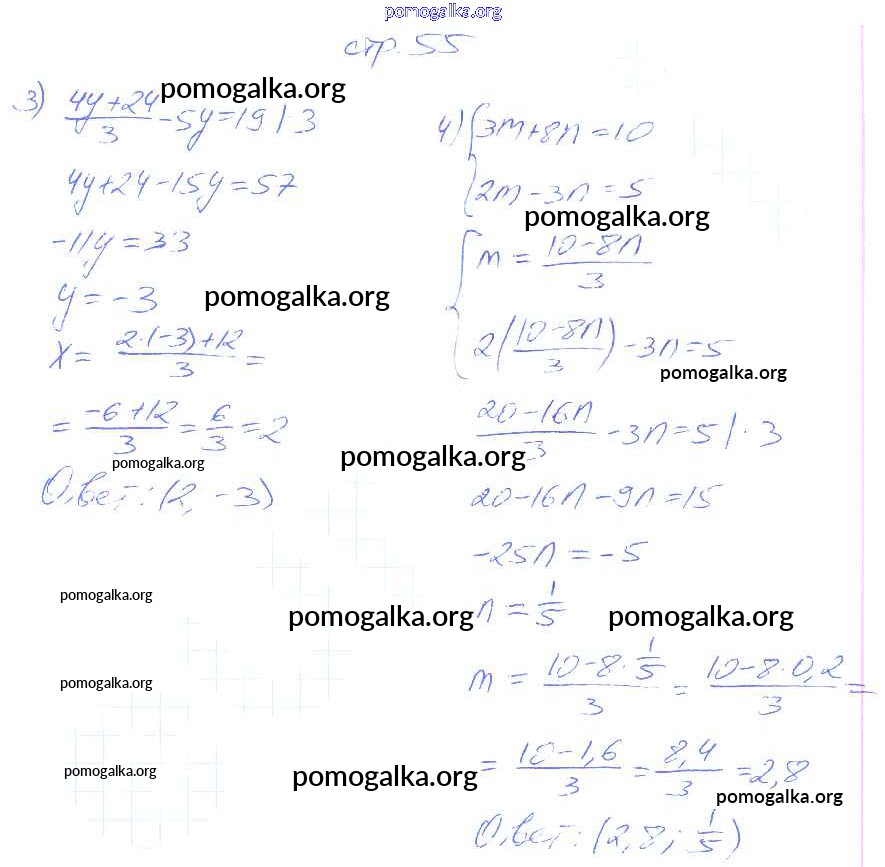 pomogalka.org
стр. 55
3) (4y+24)/3 - 5y = 19 | 3
pomogalka.org
4y+24-15y=57
-11y=33
y=-3
pomogalka.org
x = (2·(-3)+12)/3 =
= (-6+12)/3 = 6/3 = 2
pomogalka.org
Ответ: (2, -3)
4) { 3m+8n=10
2m-3n=5
pomogalka.org
{ m = (10-8n)/3
2((10-8n)/3) - 3n=5
pomogalka.org
(20-16n)/3 - 3n=5 | · 3
pomogalka.org
20-16n-9n=15
-25n=-5
pomogalka.org
pomogalka.org n = 1/5 pomogalka.org
m = (10-8·1/5)/3 = (10-8·0,2)/3 =
pomogalka.org
= (10-1,6)/3 = 8,4/3 = 2,8
pomogalka.org
pomogalka.org
pomogalka.org
Ответ: (2,8; 1/5)